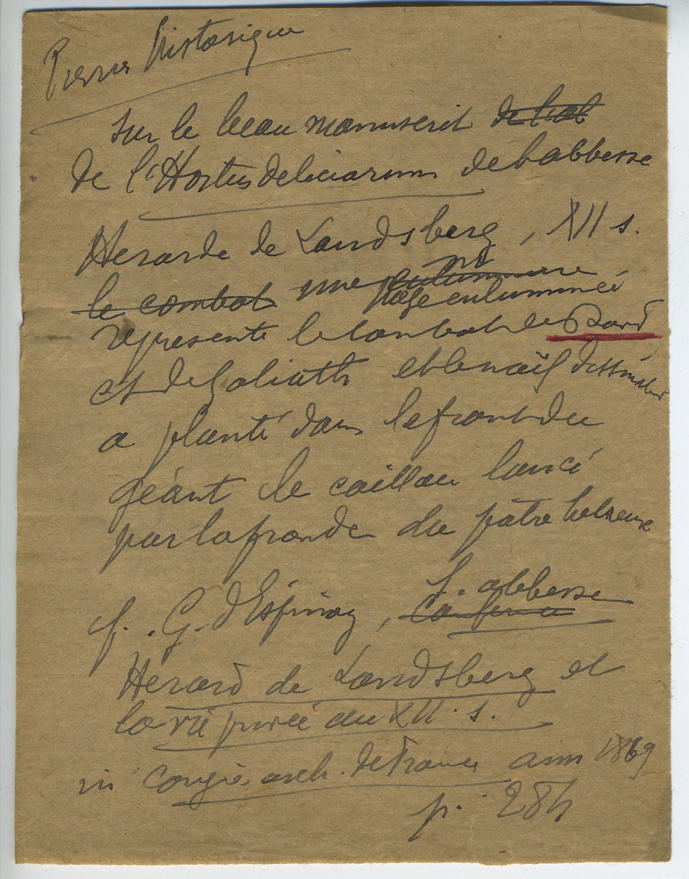 Pierres historique
Sur le beau manuscrit
de l'Hortus deliciarum de l'abbesse
Herarde de Landsberg, XII s.
le combat une enluminure
page enluminée
représente le combat de David
et de Goliath et le naïf dessinateur
a planté dans le front du
géant le caillou lancé
par la fronde du pâtre
cf. G. d'Espinay, l'abbesse
Herard de Landsberg et
la vie privée au XII. s.
in congrès arch. de France ann 1869
p. 284